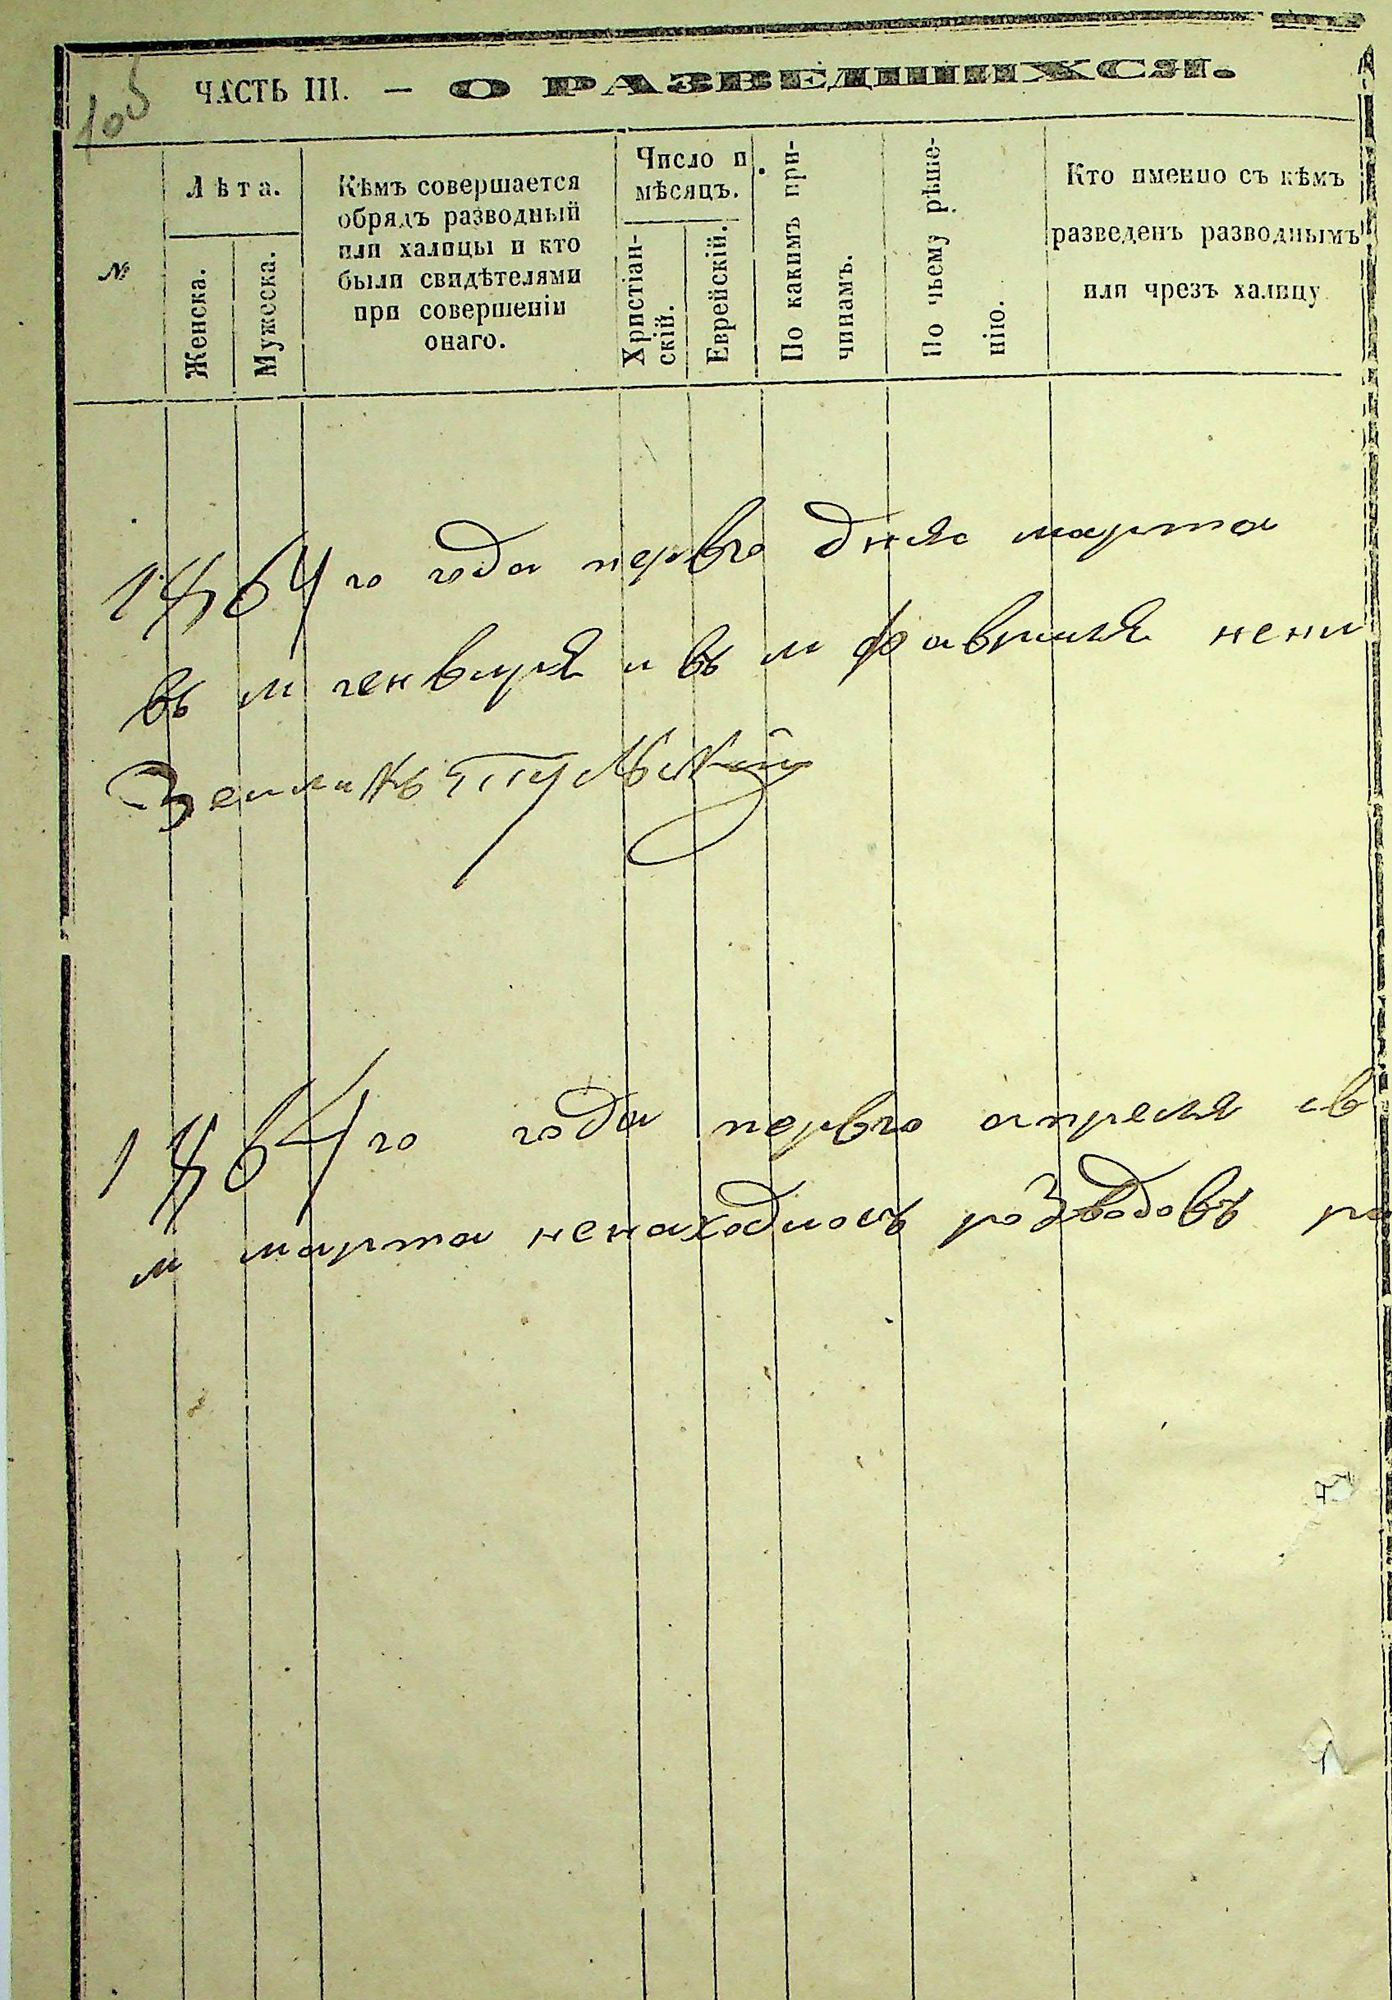 105
ЧАСТЬ III. — О РАЗВЕДШИХСЯ.
№
Лѣта.
Женска.
Мужеска.
Кѣмъ совершается
обрядъ разводный
или халицы и кто
были свидѣтелями
при совершеніи
онаго.
Число и
мѣсяцъ.
Христіан-
скій.
Еврейскій.
По какимъ при-
чинамъ.
По чьему рѣше-
нію.
Кто именно съ кѣмъ
разведенъ разводнымъ
или чрезъ халицу
1864го года перваго дня марта
въ м генваря и въ м февраля нени
1864го года перваго апреля
м марта ненаходилось розводовъ